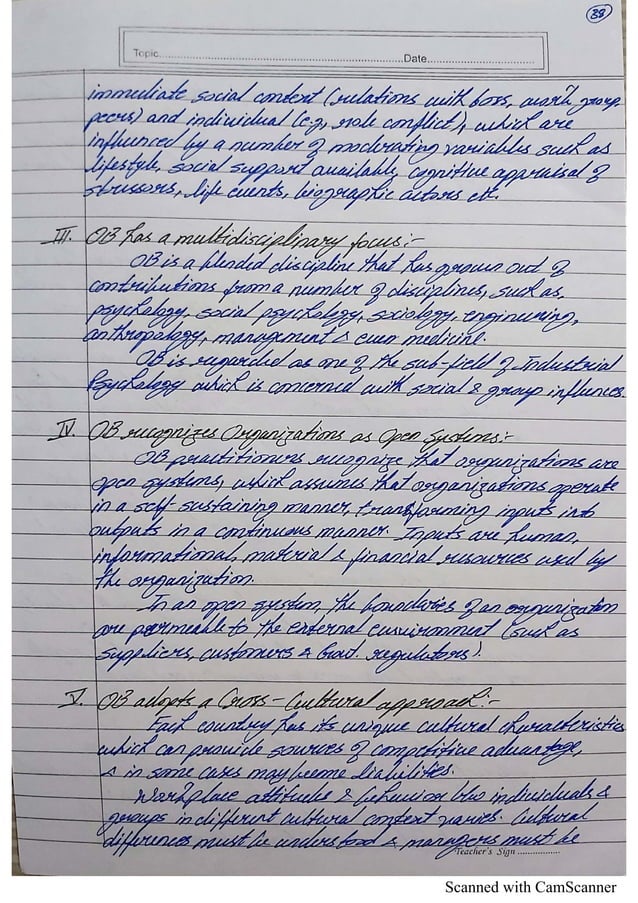 38
Topic Date
immediate social context (relations with boss, work group
peers) and individual (e.g, role conflict), which are
influenced by a number of moderating variables such as
lifestyle, social support available, cognitive appraisal of
stressors, life events, biographic actors etc.
III. OB has a multidisciplinary focus:-
OB is a blended discipline that has grown out of
contributions from a number of disciplines, such as,
psychology, social psychology, sociology, engineering,
anthropology, management & even medicine.
OB is regarded as one of the sub-field of Industrial
Psychology which is concerned with social & group influences.
IV. OB recognizes Organizations as Open Systems:-
OB practitioners recognize that organizations are
open systems, which assumes that organizations operate
in a self-sustaining manner, transforming inputs into
outputs in a continuous manner. Inputs are human,
informational, material & financial resources used by
the organization.
In an open system, the boundaries of an organization
are permeable to the external environment (such as
suppliers, customers & Govt. regulators).
V. OB adopts a Cross-Cultural approach:-
Each country has its unique cultural characteristics
which can provide sources of competitive advantage,
& in some cases may become liabilities.
Workplace attitude & behavior b/w individuals &
groups in different cultural context varies. Cultural
differences must be understood & managers must be
Teacher's Sign
Scanned with CamScanner